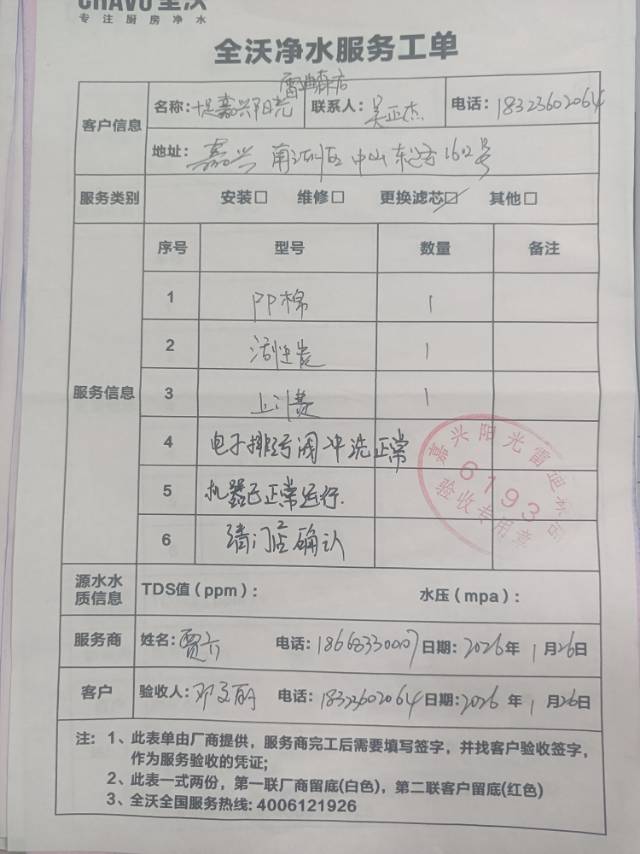 CHAVO 全沃
专注厨房净水
全沃净水服务工单
客户信息
名称：堤嘉兴阳光雷迪森店 联系人：吴正杰 电话：18323602064
地址：嘉兴 南湖区 中山东路1602号
服务类别 安装☐ 维修☐ 更换滤芯☑ 其他☐
服务信息
序号 型号 数量 备注
1 PP棉 1
2 活性炭 1
3 上门费 1
4 电子排污阀冲洗正常
5 机器已正常运行.
6 请门店确认
嘉兴阳光雷迪森店
6193
验收专用章
源水水质信息 TDS值（ppm）： 水压（mpa）：
服务商 姓名：贾六 电话：18668330007 日期：2026年1月26日
客户 验收人：邓文丽 电话：18323602064 日期：2026年1月26日
注：1、此表单由厂商提供，服务商完工后需要填写签字，并找客户验收签字，
作为服务验收的凭证；
2、此表一式两份，第一联厂商留底(白色)，第二联客户留底(红色)
3、全沃全国服务热线：4006121926